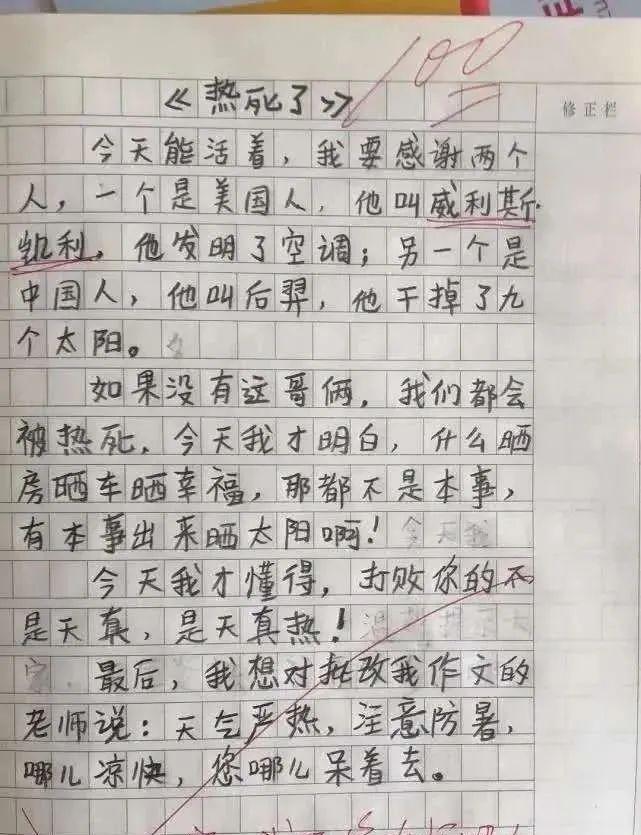 100
《热死了》
修正栏
今天能活着，我要感谢两个
人，一个是美国人，他叫威利斯·
凯利，他发明了空调；另一个是
中国人，他叫后羿，他干掉了九
个太阳。
如果没有这哥俩，我们都会
被热死，今天我才明白，什么晒
房晒车晒幸福，那都不是本事，
有本事出来晒太阳啊！
今天我才懂得，打败你的不
是天真，是天真热！
最后，我想对批改我作文的
老师说：天气严热，注意防暑，
哪儿凉快，您哪儿呆着去。